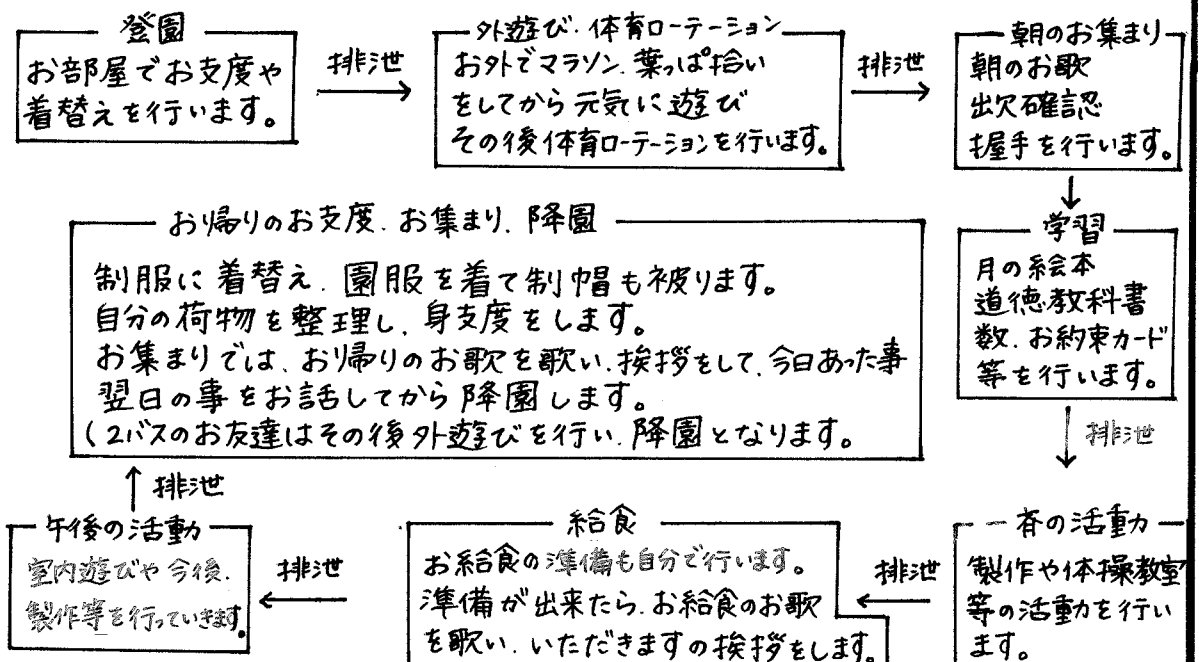 登園
お部屋でお支度や
着替えを行います。
排泄
外遊び・体育ローテーション
お外でマラソン、葉っぱ拾い
をしてから元気に遊び
その後体育ローテーションを行います。
排泄
朝のお集まり
朝のお歌
出欠確認
握手を行います。
学習
月の絵本
道徳教科書
数、お約束カード
等を行います。
排泄
一斉の活動
製作や体操教室
等の活動を行い
ます。
排泄
給食
お給食の準備も自分で行います。
準備が出来たら、お給食のお歌
を歌い、いただきますの挨拶をします。
排泄
午後の活動
室内遊びや今後、
製作等を行っていきます。
排泄
お帰りのお支度、お集まり、降園
制服に着替え、園服を着て制帽も被ります。
自分の荷物を整理し、身支度をします。
お集まりでは、お帰りのお歌を歌い、挨拶をして、今日あった事
翌日の事をお話してから降園します。
(2バスのお友達はその後外遊びを行い、降園となります。